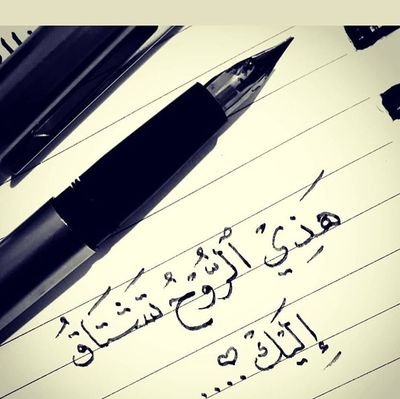 هَذِيْ الْرُّوْحُ تَشْتَاقُ
إِلَيْكَ ♡ ....